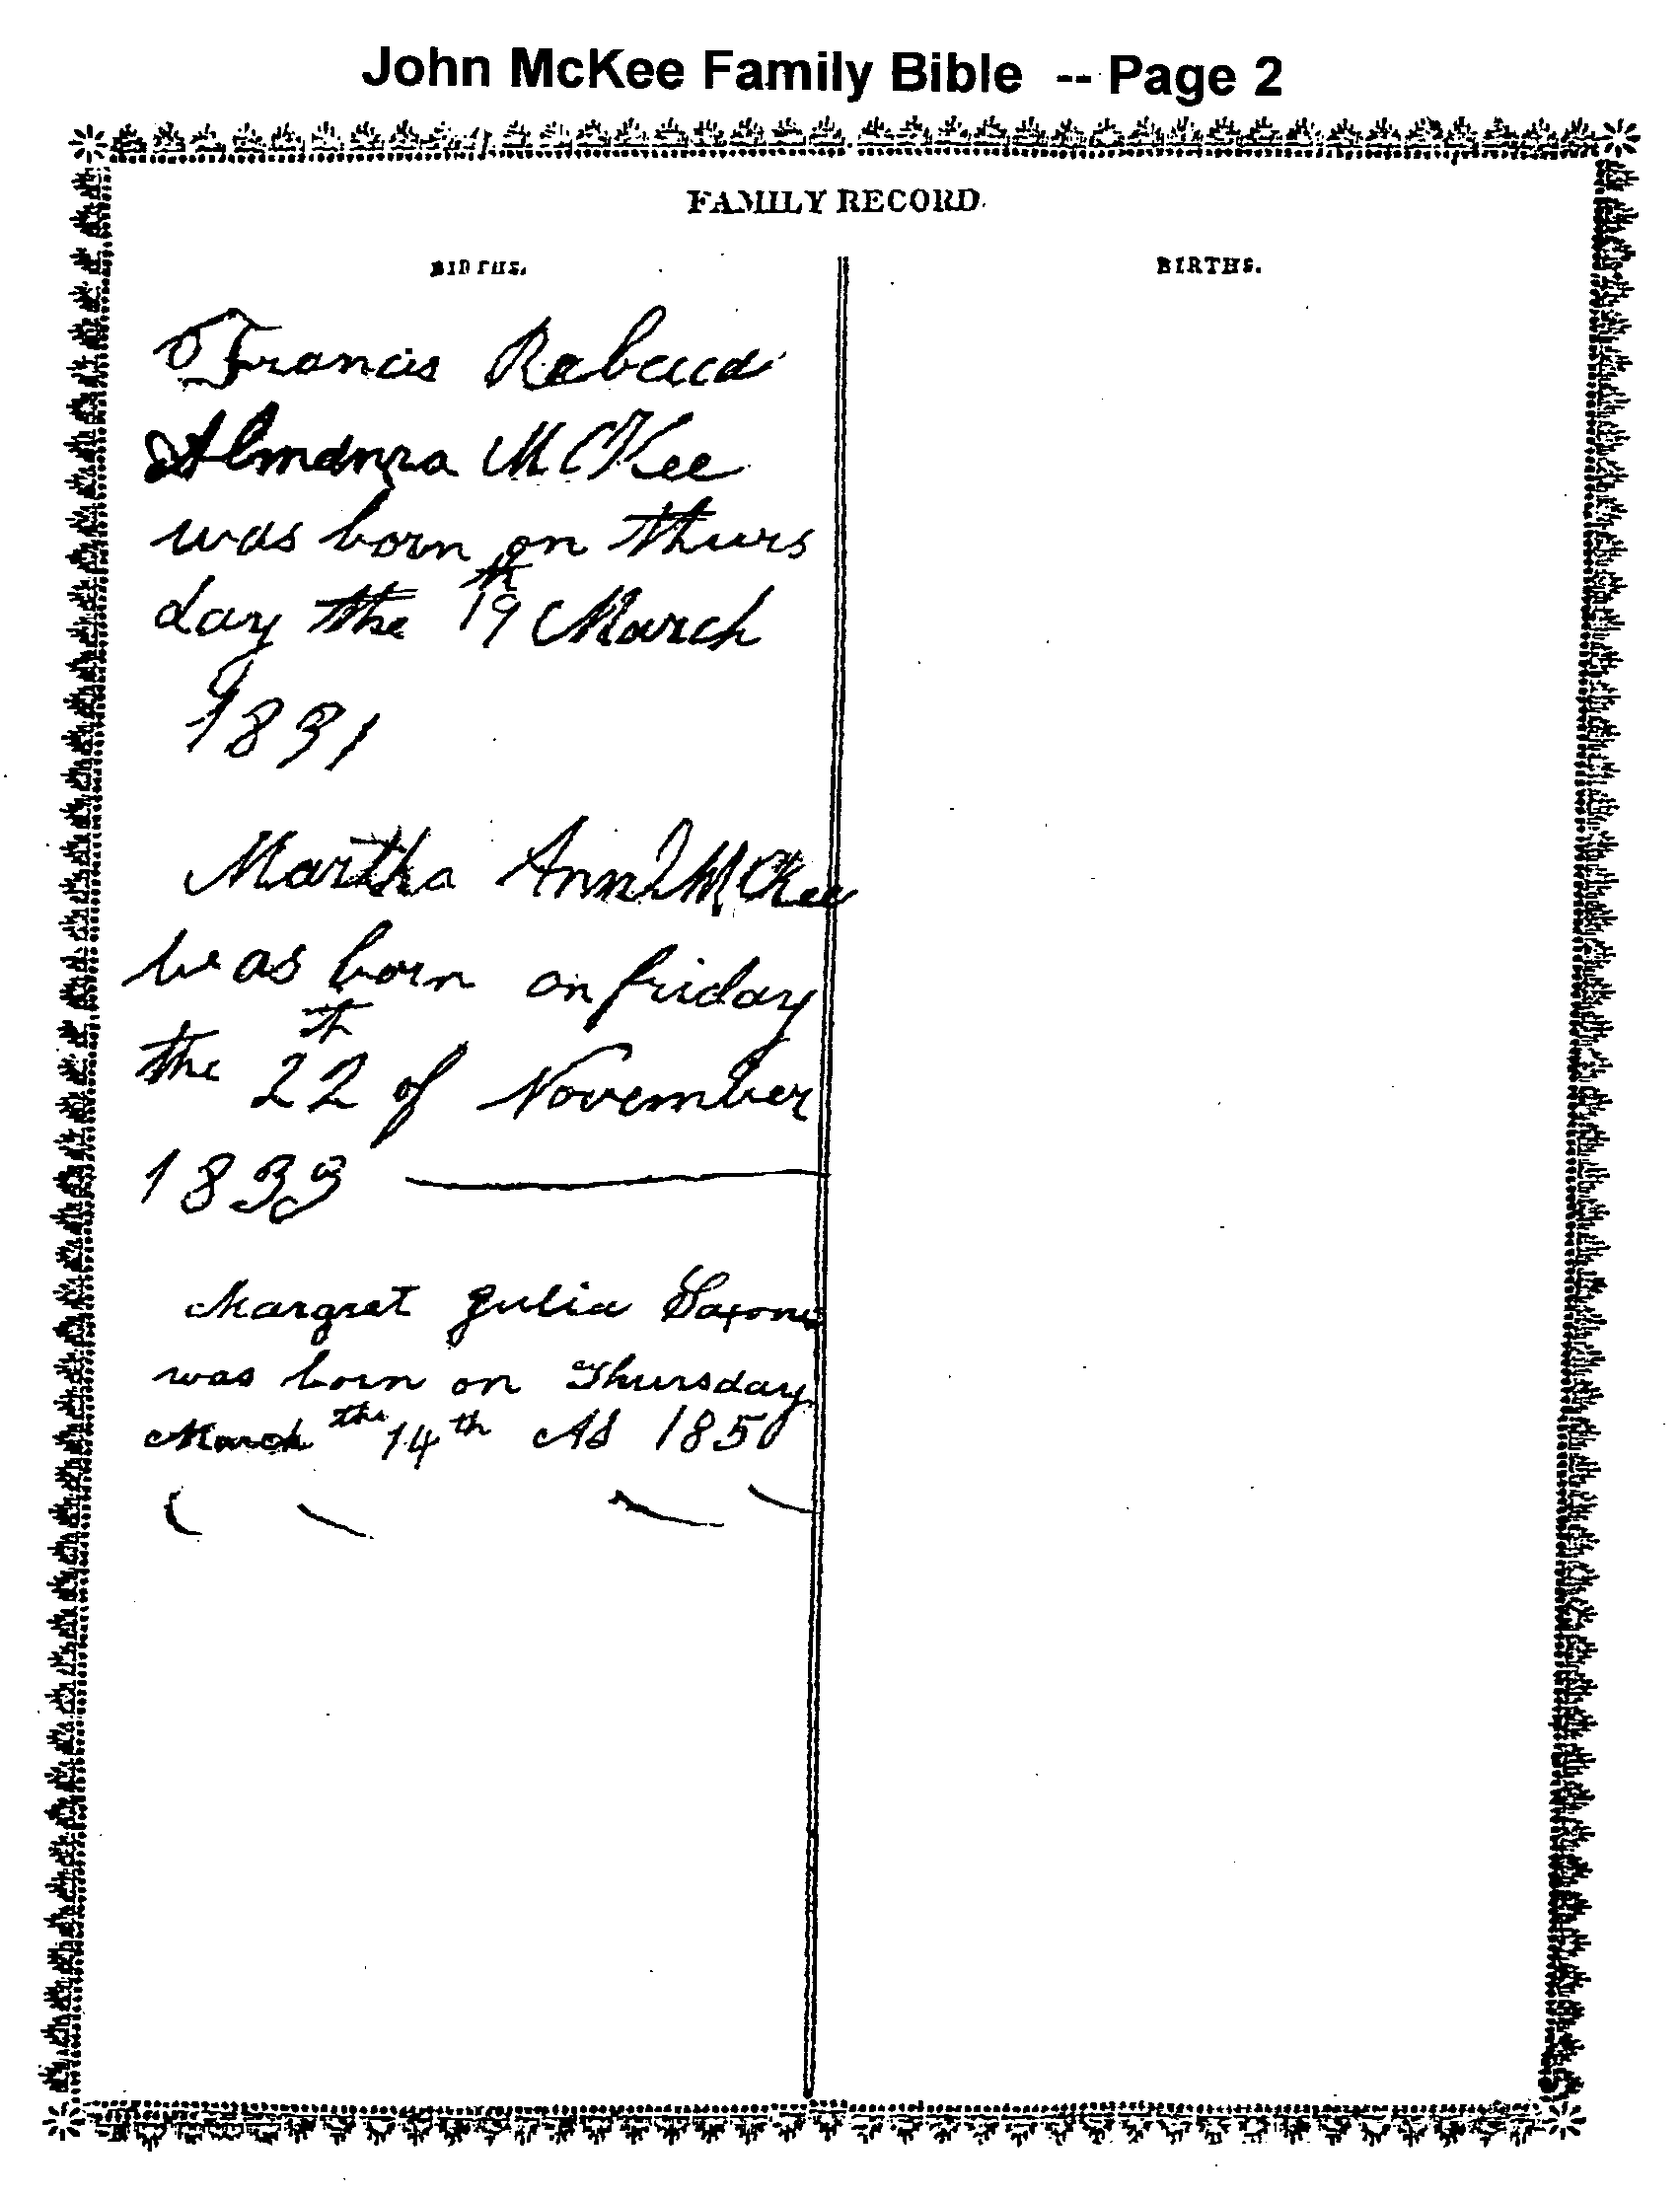 John McKee Family Bible -- Page 2
FAMILY RECORD.
BIRTHS.
BIRTHS.
Francis Rebecca
Almanza McKee
was born on thurs
day the 19th March
1831
Martha Ann J McKee
was born on friday
the 22th of November
1833
Margret Julia Saxone
was born on Thursday
March the 14th AD 1850